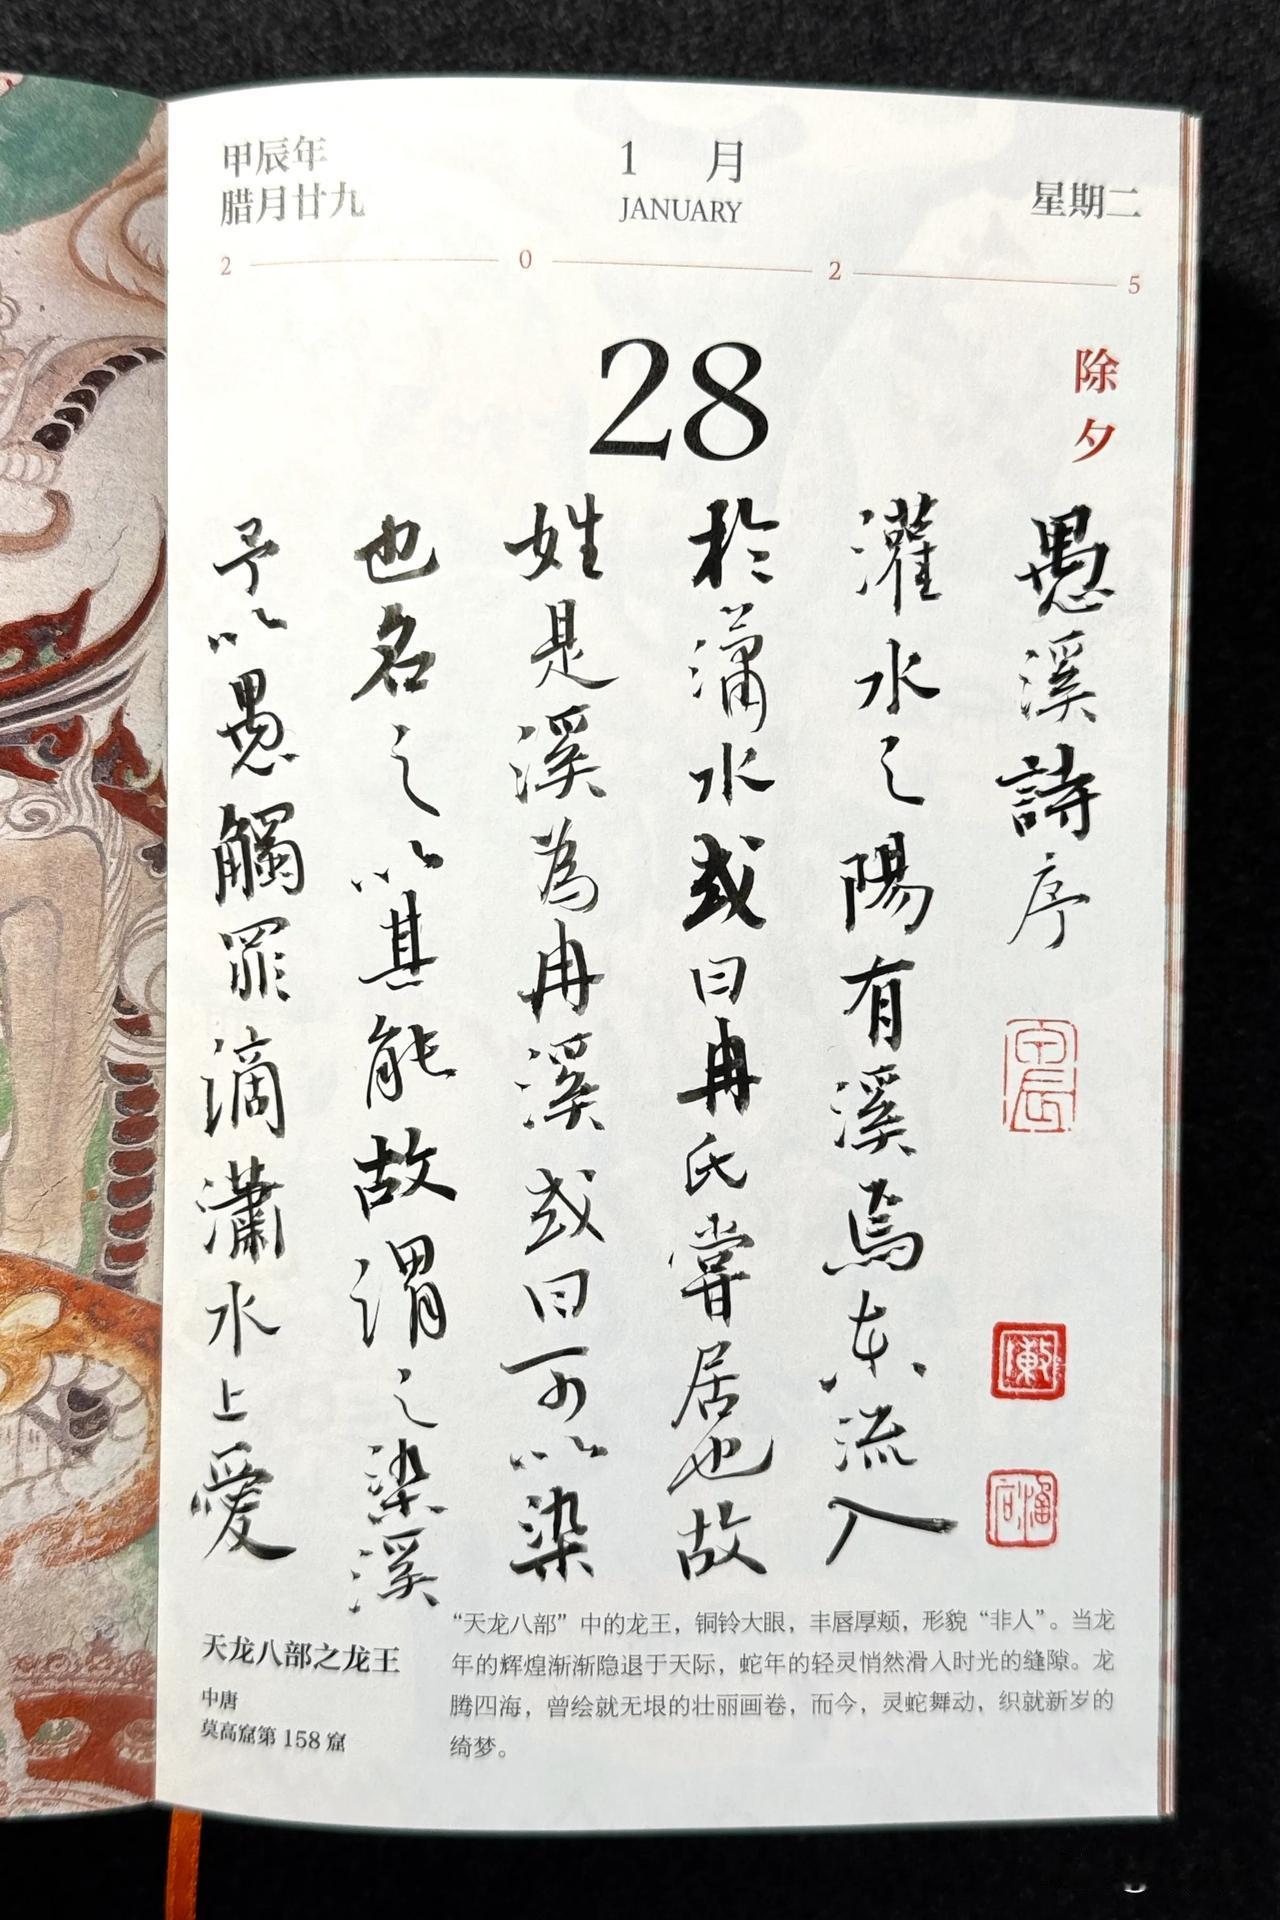 甲辰年
腊月廿九
1 月
JANUARY
星期二
2 0 2 5
28
除夕
愚溪詩序
灌水之陽有溪焉東流入
於瀟水或曰冉氏嘗居也故
姓是溪為冉溪或曰可以染
也名之以其能故謂之染溪
予以愚觸罪謫瀟水上愛
天龙八部之龙王
中唐
莫高窟第 158 窟
“天龙八部”中的龙王，铜铃大眼，丰唇厚颊，形貌“非人”。当龙
年的辉煌渐渐隐退于天际，蛇年的轻灵悄然滑入时光的缝隙。龙
腾四海，曾绘就无垠的壮丽画卷，而今，灵蛇舞动，织就新岁的
绮梦。